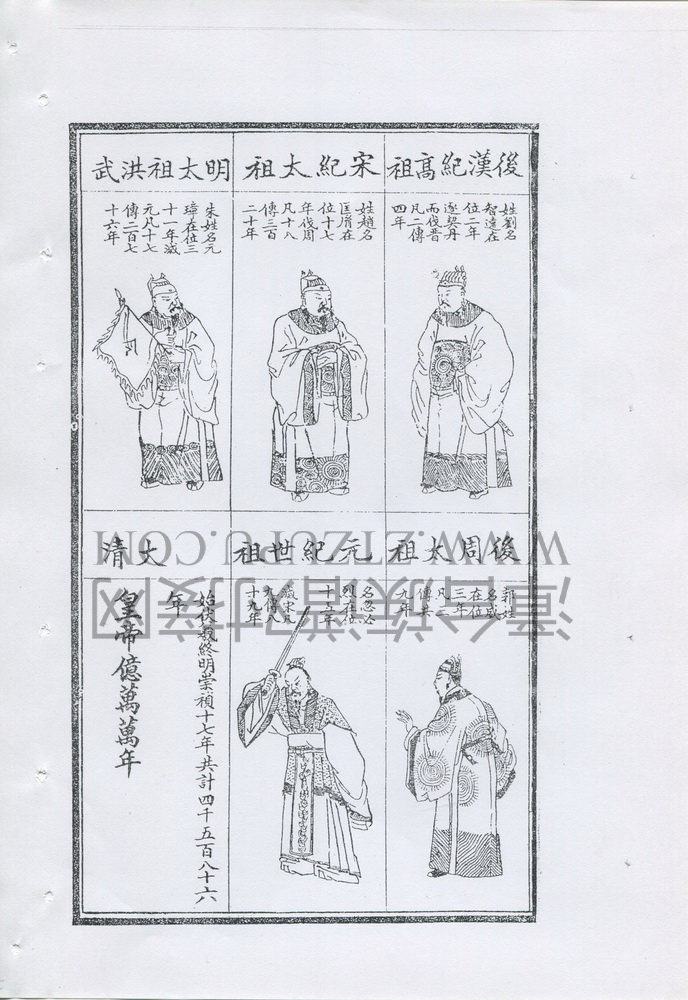 後漢紀高祖
姓劉名
智遠在
位二年
逐契丹
而伐晉
凡二傳
四年
宋紀太祖
姓趙名
匡胤在
位十七
年伐周
凡十八
傳三百
二十年
明太祖洪武
朱姓名元
璋在位三
十一年滅
元凡十七
傳二百七
十六年
後周太祖
郭姓
名威
在位
三年
凡三
傳共
九年
元紀世祖
名忽必
烈在位
十五年
滅宋凡
九傳八
十九年
大清
始伏羲終明崇禎十七年共計四千五百八十六
年
皇帝億萬萬年
WWW.ZTZUPU.COM
漳台族譜对接网